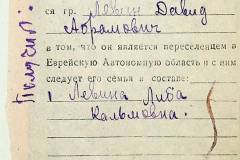 ся гр. Левин Давид
Абрамович
в том, что он является переселенцем в
Еврейскую Автономную область и с ним
следует его семья в составе:
1 Левина Либа
Кальмовна.
Получил: